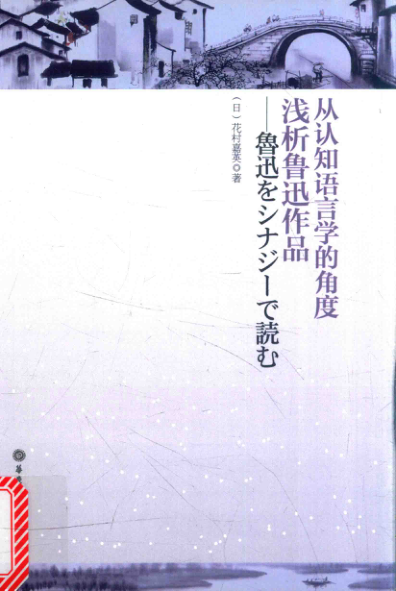 从认知语言学的角度
浅析鲁迅作品
——魯迅をシナジーで読む
（日）花村嘉英◎著